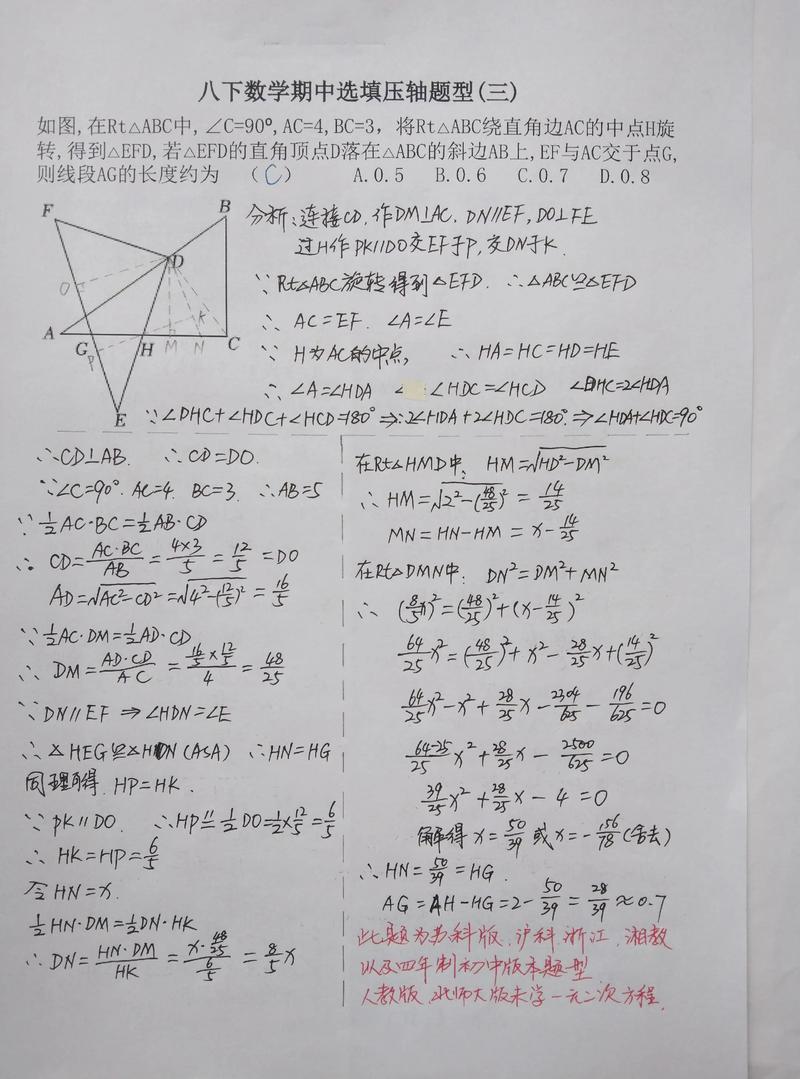 八下数学期中选填压轴题型(三)
如图,在Rt△ABC中,∠C=90°,AC=4,BC=3，将Rt△ABC绕直角边AC的中点H旋
转,得到△EFD,若△EFD的直角顶点D落在△ABC的斜边AB上,EF与AC交于点G,
则线段AG的长度约为 （C） A.0.5 B.0.6 C.0.7 D.0.8
F
B
D
O
K
A
G
P
H
M
N
C
E
分析:连接CD.作DM⊥AC.DN∥EF,DO⊥FE
过H作PK∥DO交EF于P,交DN于K.
∵Rt△ABC旋转得到△EFD. ∴△ABC≌△EFD
∴ AC=EF. ∠A=∠E
∵ H为AC的中点, ∴HA=HC=HD=HE
∴∠A=∠HDA ∠HDC=∠HCD ∠DHC=2∠HDA
∵∠DHC+∠HDC+∠HCD=180°⇒∴2∠HDA+2∠HDC=180°.⇒∠HDA+∠HDC=90°
∴CD⊥AB. ∴CD=DO.
∵∠C=90°. AC=4. BC=3. ∴AB=5
∵ 1/2 AC·BC=1/2 AB·CD
∴ CD=AC·BC/AB=4×3/5=12/5=DO
AD=√(AC²-CD²)=√(4²-(12/5)²)=16/5
∵1/2 AC·DM=1/2 AD·CD
∴ DM=AD·CD/AC=(16/5×12/5)/4=48/25
∵DN∥EF ⇒∠HDN=∠E
∴△HEG≌△HDN(ASA) ∴HN=HG
同理可得.HP=HK.
∵PK∥DO. ∴HP∥=1/2 DO=1/2×12/5=6/5
∴HK=HP=6/5
令HN=x.
1/2 HN·DM=1/2 DN·HK
∴DN=HN·DM/HK=(x·48/25)/(6/5)=8/5 x
在Rt△HMD中: HM=√(HD²-DM²)
∴HM=√(2²-(48/25)²)=14/25
MN=HN-HM=x-14/25
在Rt△DMN中: DN²=DM²+MN²
∴ (8/5 x)²=(48/25)²+(x-14/25)²
64/25 x²=(48/25)²+x²-28/25 x+(14/25)²
64/25 x²-x²+28/25 x-2304/625-196/625=0
64-25/25 x²+28/25 x-2500/625=0
39/25 x²+28/25 x-4=0
解得x=50/39或x=-156/78(舍去)
∴HN=50/39=HG.
AG=AH-HG=2-50/39=28/39≈0.7
此题为苏科版.沪科.浙江.湘教
以及四年制初中版本题型
人教版.北师大版未学一元二次方程.